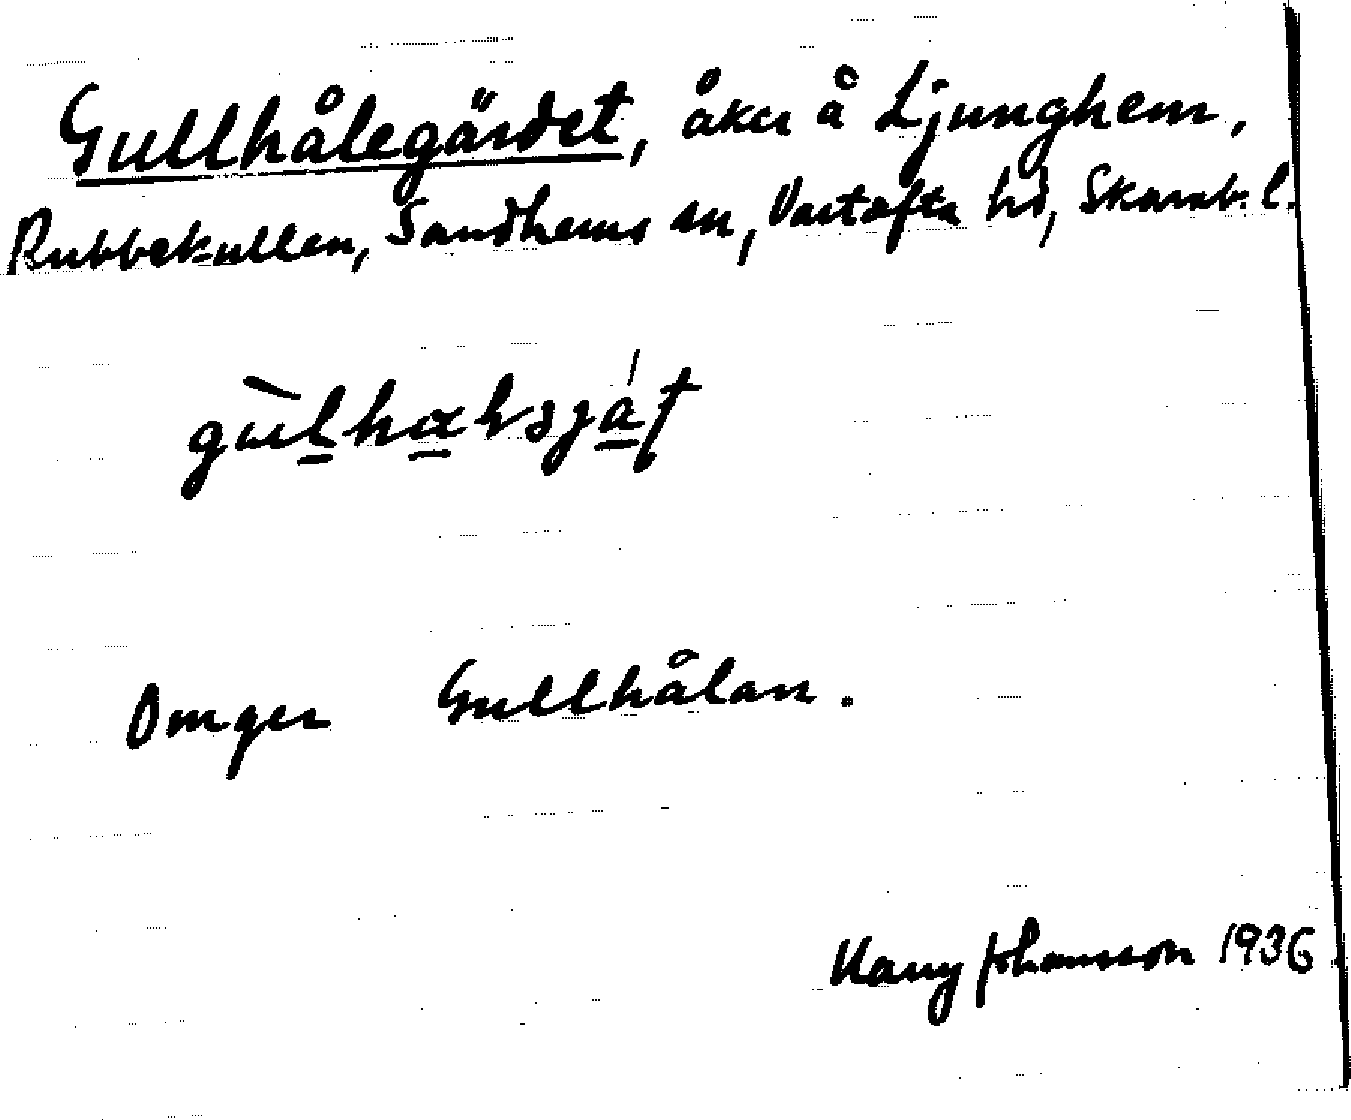 Gullhålegärdet, åker å Ljunghem,
Rubbekullen, Sandhems sn, Vartofta hd, Skarab. l.
Omger Gullhålan.
Harry Johansson 1936